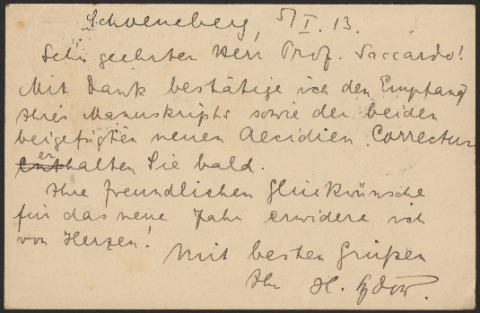 Schoeneberg, 5/I. 13.
Sehr geehrter Herr Prof. Saccardo!
Mit Dank bestätige ich den Empfang
Ihres Manuskripts sowie der beiden
beigefügten neuen Aecidien. Correctur
erhalten Sie bald.
Ihre freundlichen Glückwünsche
für das neue Jahr erwidere ich
von Herzen!
Mit besten Grüßen
Ihr H. Sydow.